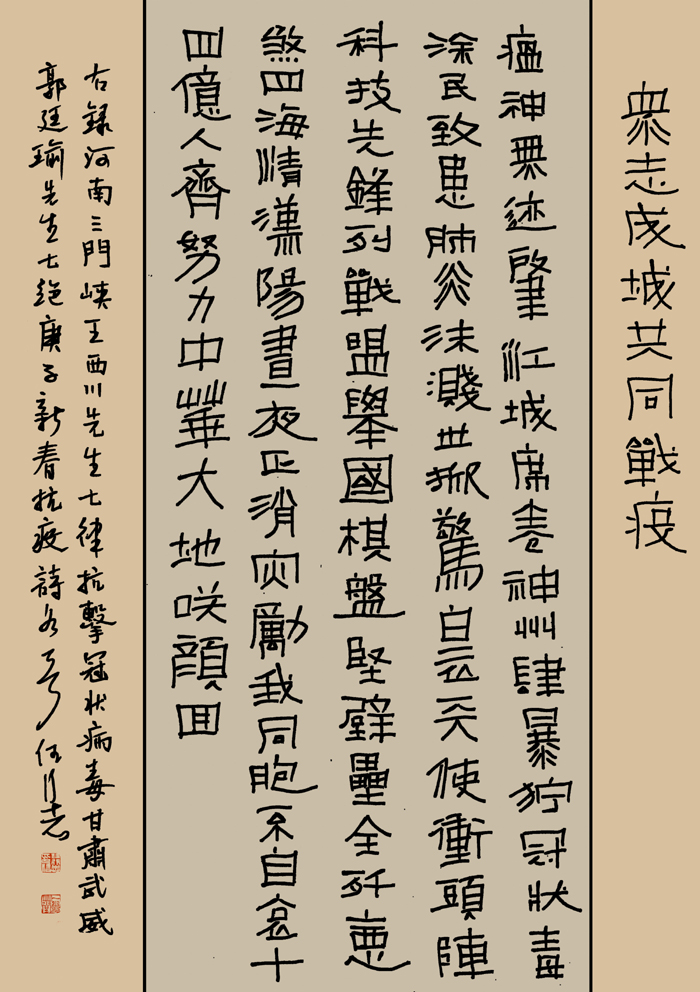 眾志成城共同戰疫
瘟神無迹肇江城席卷神州肆暴獰冠狀毒
深民致患肺炎沫濺世掀驚白衣天使衝頭陣
科技先鋒列戰盟舉國棋盤堅壁壘全殲惡
煞四海清漢陽晝夜正消災勵我同胞不自哀十
四億人齊努力中華大地咲顏囬
右錄河南三門峽王西川先生七律抗擊冠狀病毒甘肅武威
郭廷瑜先生七絕庚子新春抗疫詩各一首